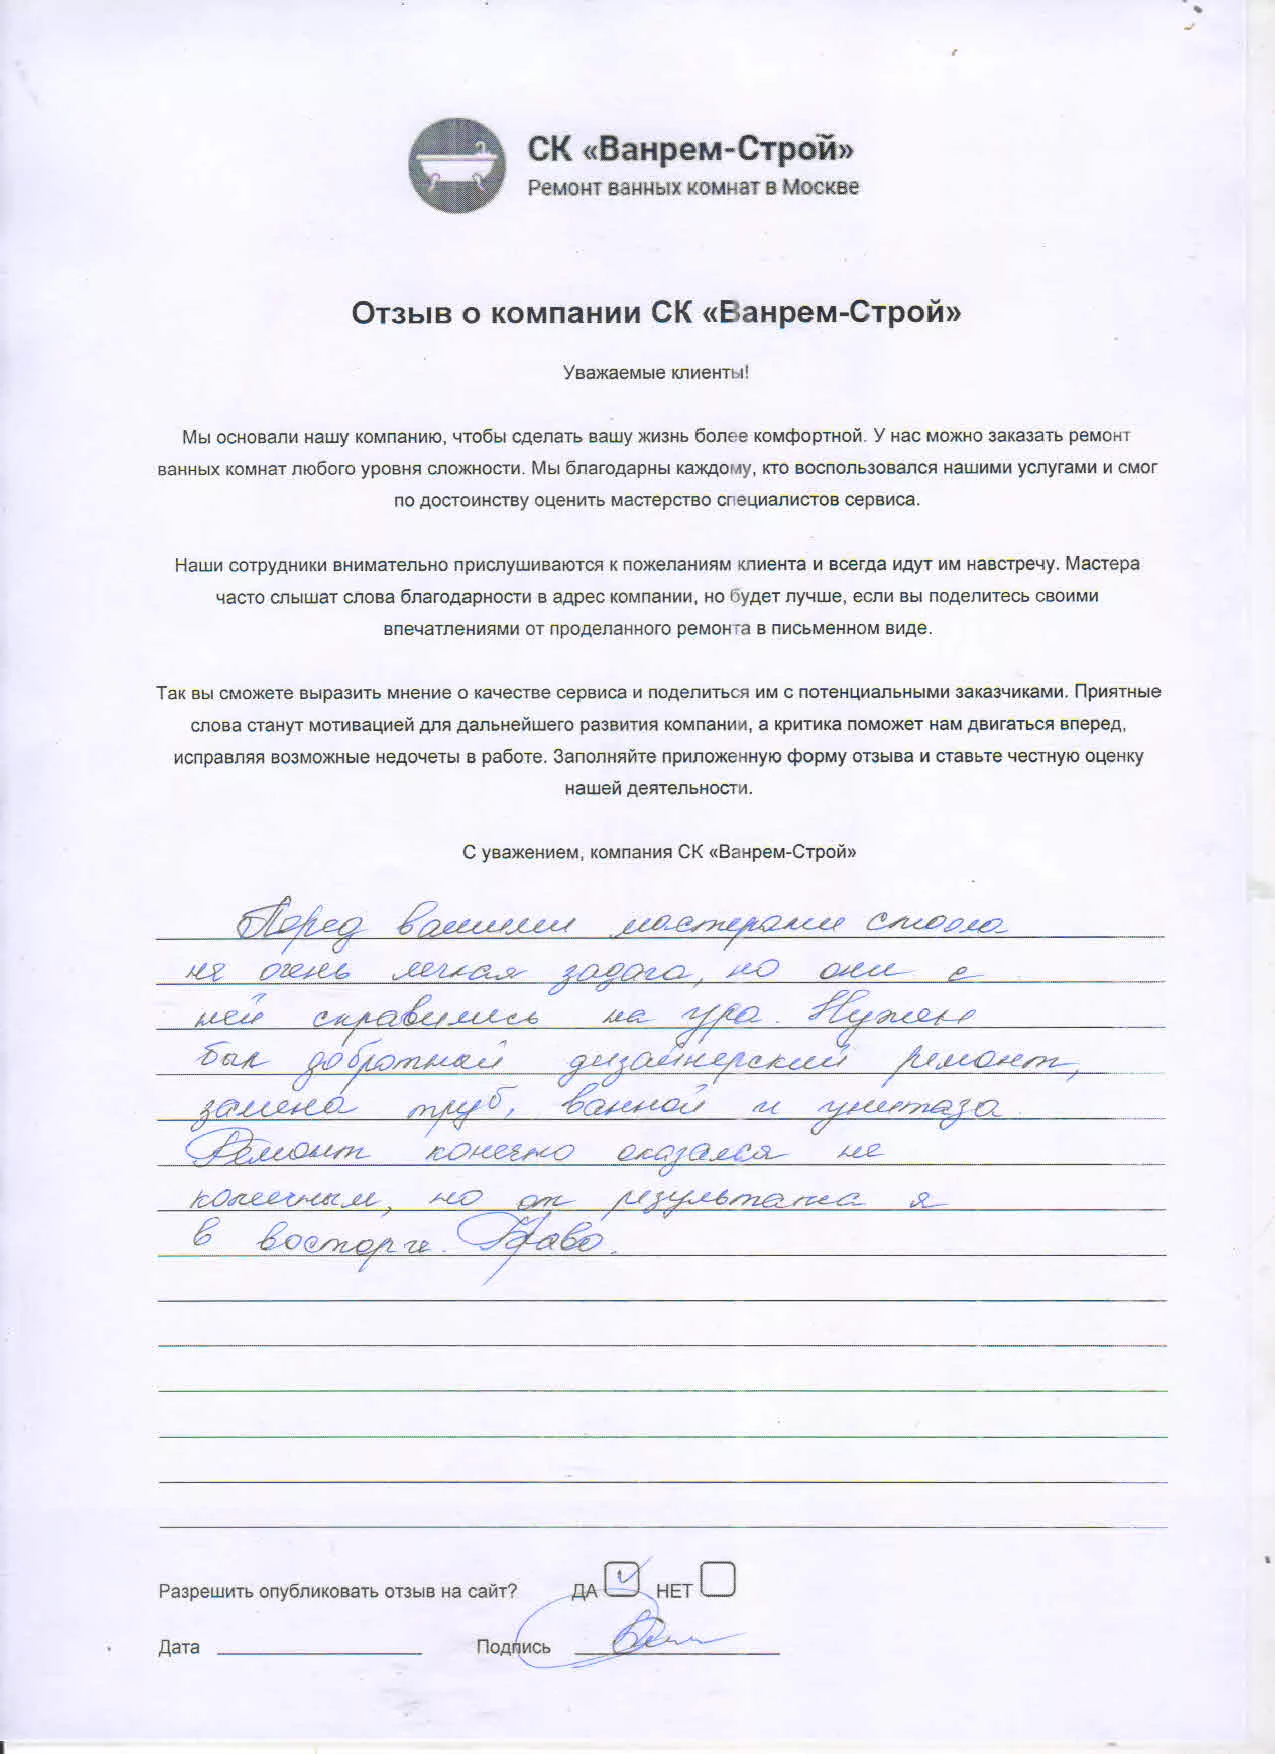 СК «Ванрем-Строй»
Ремонт ванных комнат в Москве
Отзыв о компании СК «Ванрем-Строй»
Уважаемые клиенты!
Мы основали нашу компанию, чтобы сделать вашу жизнь более комфортной. У нас можно заказать ремонт
ванных комнат любого уровня сложности. Мы благодарны каждому, кто воспользовался нашими услугами и смог
по достоинству оценить мастерство специалистов сервиса.
Наши сотрудники внимательно прислушиваются к пожеланиям клиента и всегда идут им навстречу. Мастера
часто слышат слова благодарности в адрес компании, но будет лучше, если вы поделитесь своими
впечатлениями от проделанного ремонта в письменном виде.
Так вы сможете выразить мнение о качестве сервиса и поделиться им с потенциальными заказчиками. Приятные
слова станут мотивацией для дальнейшего развития компании, а критика поможет нам двигаться вперед,
исправляя возможные недочеты в работе. Заполняйте приложенную форму отзыва и ставьте честную оценку
нашей деятельности.
С уважением, компания СК «Ванрем-Строй»
Перед вашими мастерами стояла
не очень легкая задача, но они с
ней справились на ура. Нужен
был добротный дизайнерский ремонт,
замена труб, ванной и унитаза
Ремонт конечно оказался не
копеечным, но от результата я
в восторге. Браво.
Разрешить опубликовать отзыв на сайт? ДА НЕТ
Дата Подпись